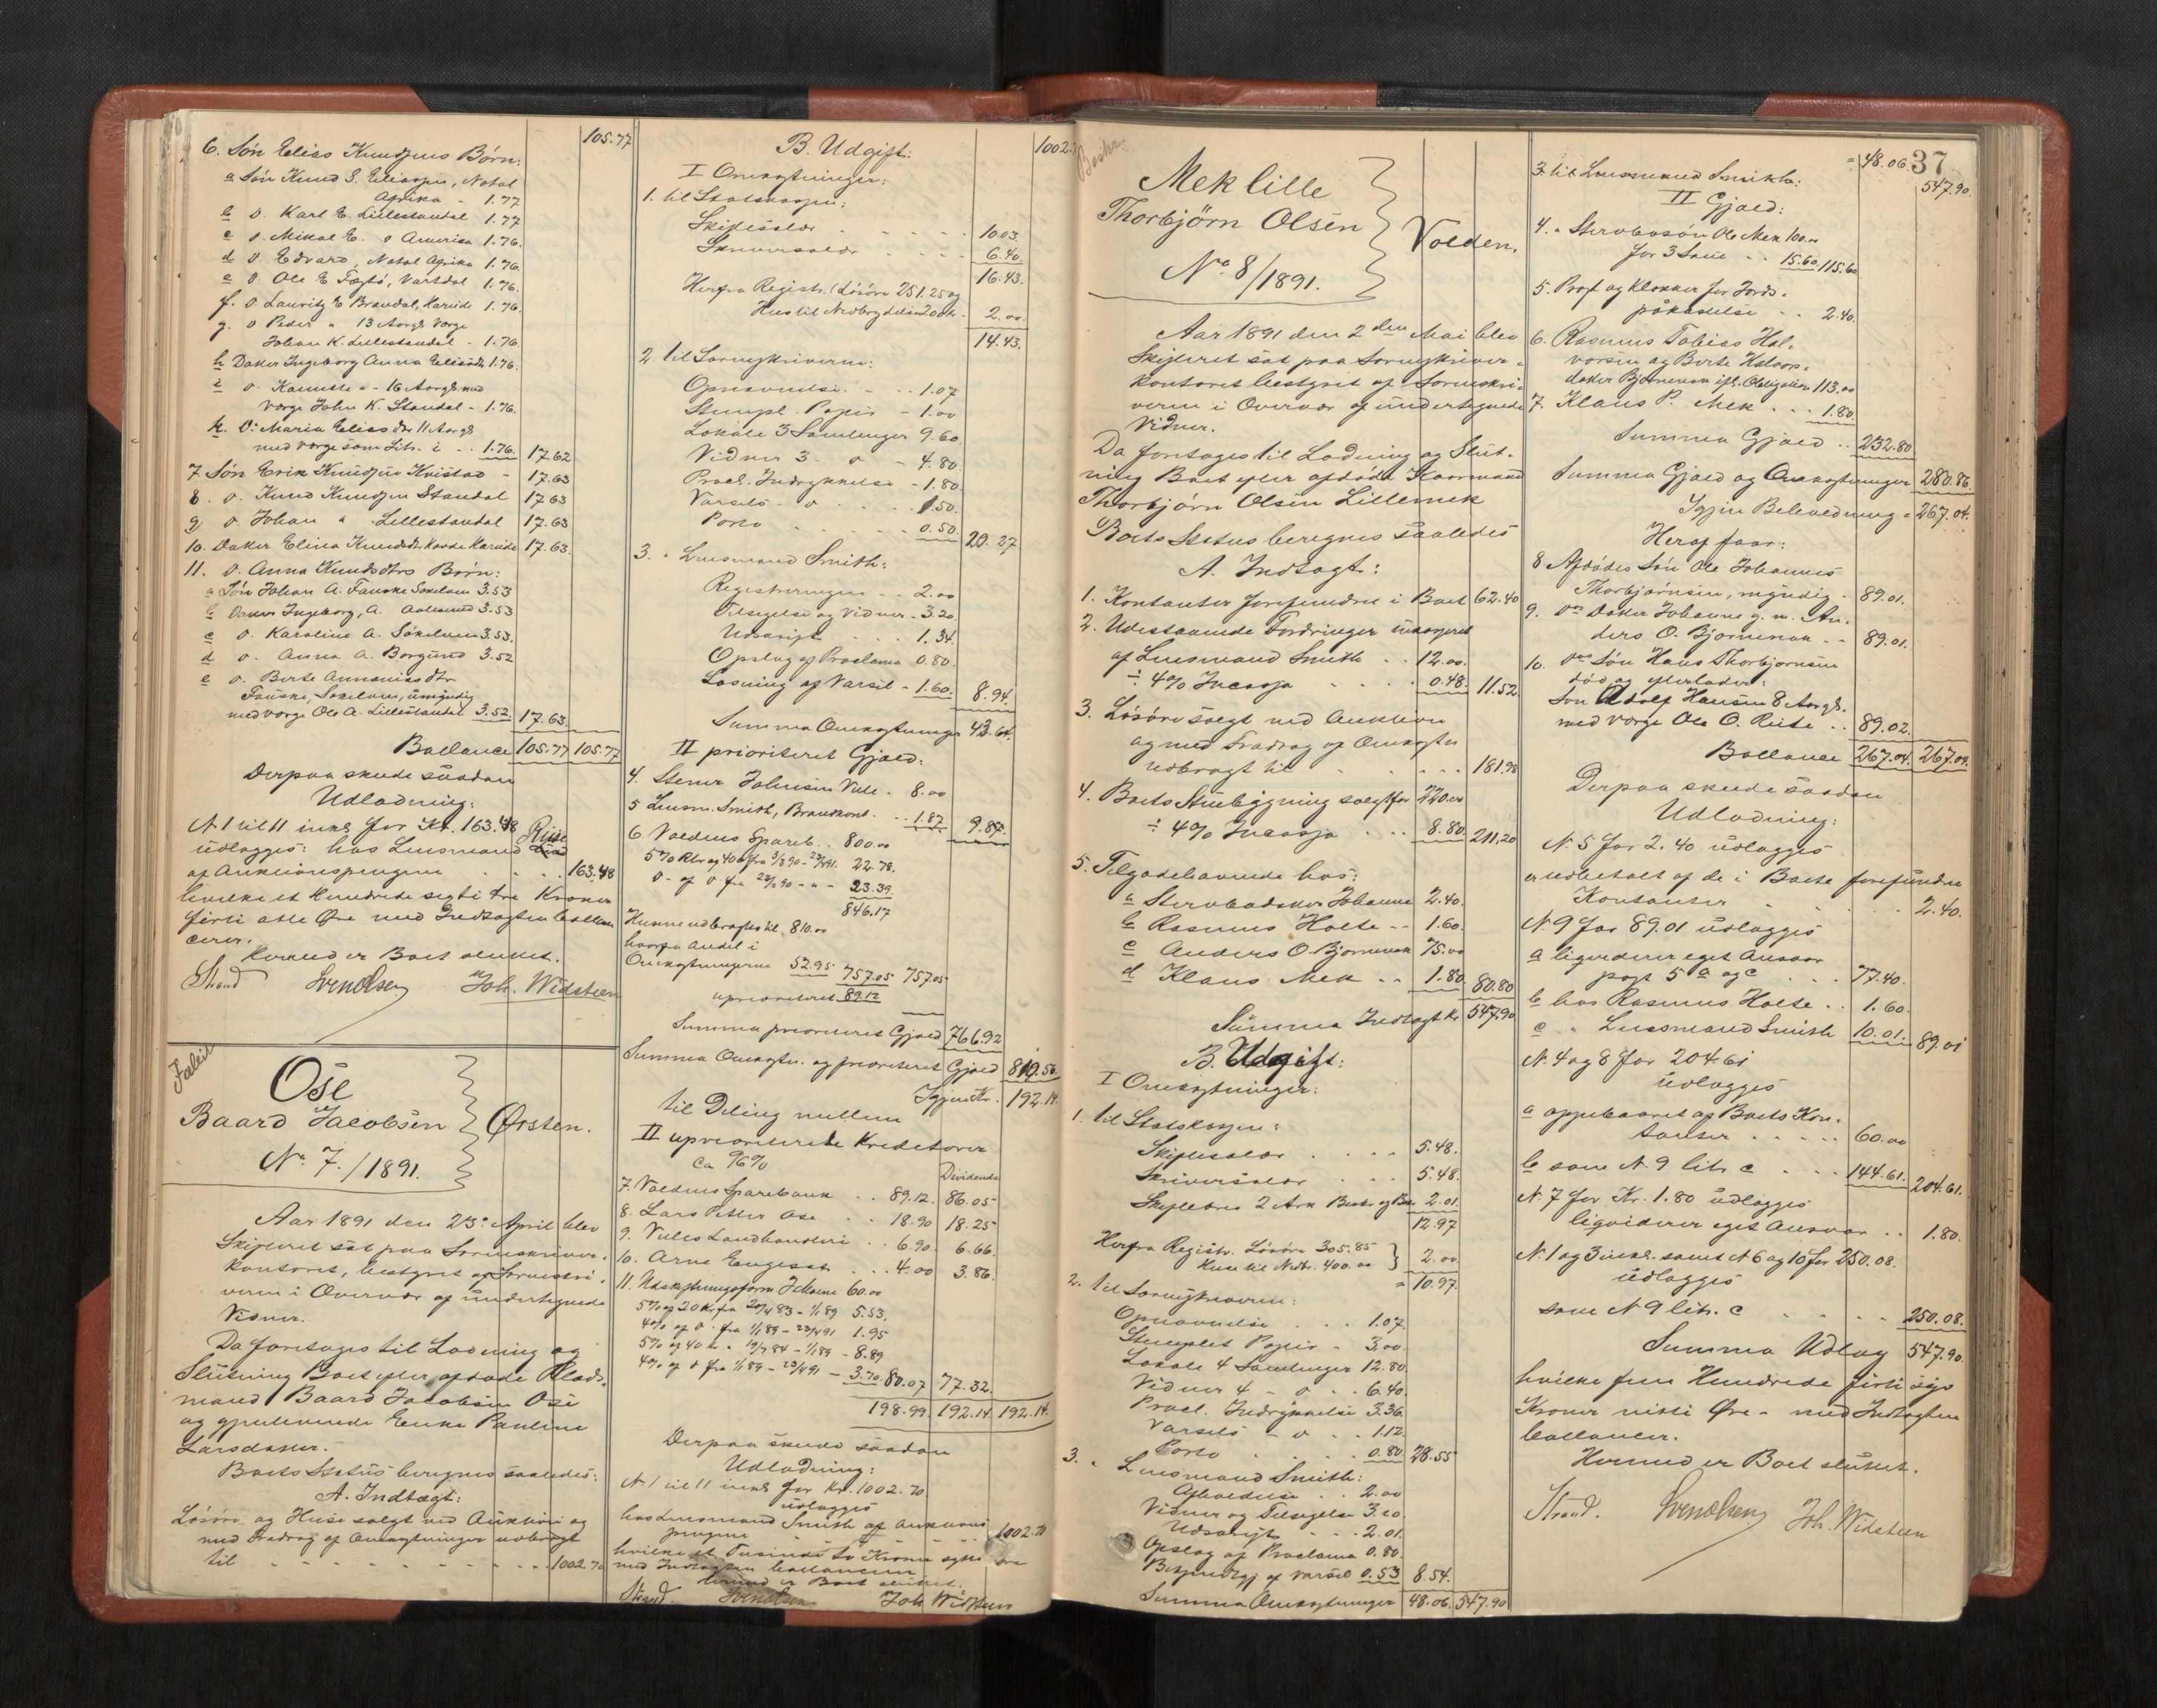 105.77
6. Søn Elias Knudsens Børn:
a Søn Knud S. Eliassen, Natal
Afrika - 1.77
b D. Karl E. Lillestandal 1.77
c D. Mikal E. D Amerika 1.76.
d D Edvard, Natal Afrika 1.76.
e D Ole E Vartdal 1.76.
f. D Lauritz E Brandal, Hareide 1.76.
g. D Peder " 13 Aar gl. Verge
Johan K. Lillestandal - 1.76.
h Datter Ingeborg Anna Eliasdtr 1.76.
i D. - 16 Aar gl. med
Verge John K. Standal - 1.76.
k. D: Maria Eliasdtr 11 Aar gl.
med verge som Litr. i - 1.76. 17.62
7 Søn Erik Knudsen Kvistad - 17.63
8. D. Knud Knudsen Standal 17.63
9 D. Johan " Lillestandal 17.63
10. Datter Elina Knudsdtr Hareide 17.63.
11. D. Anna Knudsdtrs Børn:
a Søn Johan A. Sekelven 3.53
b Datter Ingeborg, A. Aalesund 3.53
c D. Karoline A. Søkelven 3.53.
d D. Anna A. Borgund 3.52
e D. Berte Annanias dtr
Sekelven, umyndig
med verge Ole A. Lillestandal 3.52. 17.63.
Ballance 105.77 105.77
Derpaa skede saadan
Udlodning:
N 1 til 11 inkl for Kr. 163.48
udlægges: hos Lensmand Riise
af Auktionspengene 163.48
hvilke et Hundrede sexti tre Kroner
førti otte Øre med Indtægten ballan
cerer.
Hermed er Boet sluttet.
Strand Svendsen Joh. Widsteen
Ose
Baard Jacobsen } Ørsten.
No 7./1891.
Aar 1891 den 23: April blev
Skifteret sat paa Sorenskriver-
kontoret, bestyret af Sorenskri-
veren i Overvær af undertegnede
Vidner.
Da foretoges til Lodning og
Slutning Boet efter afdøde Plads-
mand Baard Jacobsen Ose
og gjenlevende Enke Pauline
Larsdatter.
Boets Status beregnes saaledes:
A. Indtægt:
Løsøre og Huse solgt ved Auktion og
med Fradrag af Omkostninger udbragt
til - - - - - 1002.70
B. Udgift: 1002.
I Omkostninger:
1. til Statskassen:
Skiftesalær - - - 10.03.
Skriversalær - - - 6.40.
16.43.
Herfra Registr. (Løsøre 251.25 og
Huse til Nedbrydelse 200 Kr - 2.00.
14.43.
2. til Sorenskriveren:
Opnævnelse - - 1.07
Stempl. Papir - 1.00
Lokale 3 Samlinger 9.60.
Vidner 3 - D - 4.80
Procl. Indrykkelse - 1.80.
Varsels - D - 1.50.
Porto - - 0.50. 20.27
3. " Lensmand Smith:
Registreringen - - 2.00
Tilsigelse og Vidner - 3.20
Udskrift - - 1.34.
Opslag af Proclama 0.80.
Læsning af Varsel - 1.60. 8.94.
Summa Omkostninger 43.64.
II prioriteret Gjæld:
4. Stener Johnsen - 8.00
5 Lensm. Smith, Brandkont. - 1.87 9.87.
6. Voldens Spareb. - 800.00
22.78.
23.39.
846.17
Husene udbragtes til 810.00
hvorfra Andel i
Omkostningerne 52.95 757.05 757.05
uprioriteret 89.12
Summa prioriteret Gjæld 766.92
Summa Omkostn. og prioriteret Gjæld 810.56
Igjen Kr. 192.14.
til Deling mellem
II uprioriterede Kreditorer
ca 96%
Dividende
7. Voldens Sparebank - - 89.12. 86.05
8. Lars Petter Ose - - 18.90 18.25
9. Landhandleri - - 6.90. 6.66.
10. Arne - - 4.00 3.86.
11. 60.00
5.53.
1.95
8.89
3.70. 80.07 77.32.
198.99. 192.14. 192.14.
Derpaa skede saadan
Udlodning:
N. 1 til 11 inkl for Kr. 1002.70
udlægges
hos Lensmand Smith af Auktions
pengene - - 1002.70
hvilke et Tusinde to Kroner sytti Øre
med Indtægten ballancerer
Hermed er Boet sluttet.
Strand. Svendsen Joh Widsteen
Mek lille
Thorbjørn Olsen } Volden.
No 8/1891.
Aar 1891 den 2den Mai blev
Skifteret sat paa Sorenskriver-
kontoret bestyret af Sorenskri-
veren i Overvær af undertegnede
Vidner.
Da foretoges til Lodning og Slut-
ning Boet efter afdøde Kaarmand
Thorbjørn Olsen Lillemek
Boets Status beregnes saaledes
A. Indtægt:
1. Kontanter forefundne i Boet 62.40
2. Udestaaende Fordringer inkasseret
af Lensmand Smith - - 12.00.
÷ 4% Incasso - - 0.48. 11.52.
3. Løsøre solgt ved Auktion
og med Fradrag af Omkostn
udbragt til - - - 181.98
4. Boets Stuebygning solgt for 220.00
÷ 4% Incasso - - 8.80. 211.20
5. Tilgodehavende hos:
a Stervbodatter Johanne 2.40.
b Rasmus Holte - - 1.60.
c Anders O. Bjørnemek 75.00
d Klaus Mek - - 1.80 80.80
Summa Indtægt Kr 547.90
B. Udgift:
I Omkostninger:
1. til Statskassen:
Skiftesalær - - 5.48.
Skriversalær - - 5.48.
2 Ark 2.01.
12.97
Herfra Registr. Løsøre 305.85
Huse til Nedbr. 400.00 } 2.00
= 10.97.
2. til Sorenskriveren:
Opnævnelse - - 1.07.
Stemplet Papir - 3.00.
Lokale 4 Samlinger 12.80.
Vidner 4 - D - 6.40.
Procl. Indrykkelse 3.36.
Varsels - D - 1.12.
Porto - - 0.80. 28.55
3. " Lensmand Smith:
Afholdelse - - 2.00
Vidner og Tilsigelse 3.20.
Udskrift - - 2.01.
Opslag af Proclama 0.80.
af Varsel 0.53 8.54.
Summa Omkostninger 48.06. 547.90
37
3. til Lensmand Smith: = 48.06. 547.90.
II Gjæld:
4. " Stervbosøn Ole Mek 100.00
for 3 - - 15.60. 115.60
5. Prost og Klokker for Jords-
påkastelse - - 2.40.
6. Rasmus Tobias Hal-
vorsen og Berte Halvors-
datter Bjørnemek ifl. Obligation 113.00
7. Klaus P. Mek - - 1.80.
Summa Gjæld - 232.80
Summa Gjæld og Omkostninger 280.86.
Igjen Beholdning = 267.04.
Heraf faar:
8 Afdødes Søn Ole Johannes
Thorbjørnsen, myndig - 89.01.
9. Ds Datter Johanne g. m. An-
ders O. Bjørnemek - - 89.01.
10. Ds Søn Hans Thorbjørnsen
død og efterlader:
Søn Adolf Hansen 8 Aar gl.
med Verge Ole O. - 89.02.
Ballance 267.04. 267.04.
Derpaa skede saadan
Udlodning:
N. 5 for 2.40 udlægges
er udbetalt af de i Boet forefundne
Kontanter - - 2.40.
N. 9 for 89.01 udlægges
a liqviderer eget Ansvar
post 5 a og c - - 77.40.
b hos Rasmus Holte - - 1.60.
c " Lensmand Smith 10.01. 89.01
N. 4 og 8 for 204.61
udlægges
a oppebaaret af Boets Kon-
tanter - - 60.00
b som N. 9 litr. c - - 144.61. 204.61.
N. 7 for Kr. 1.80 udlægges
liqviderer eget Ansvar - - 1.80.
N. 1 og 3 inkl. samt N 6 og 10 for 250.08.
udlægges
som N 9 litr. c - - 250.08.
Summa Udlæg 547.90.
hvilke fem Hundrede førti syv
Kroner nitti Øre - med Indtægten
ballancer.
Hermed er Boet sluttet.
Strand. Svendsen Joh. Widsteen